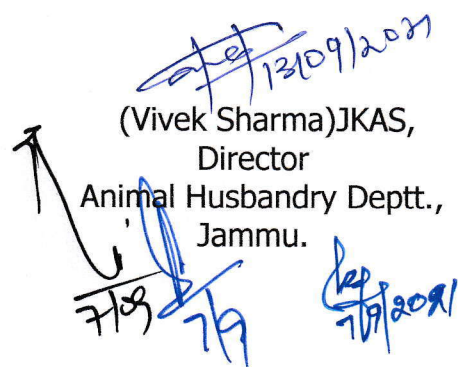 13/09/2021
(Vivek Sharma)JKAS,
Director
Animal Husbandry Deptt.,
Jammu.
7/09
7/9
7/9/2021